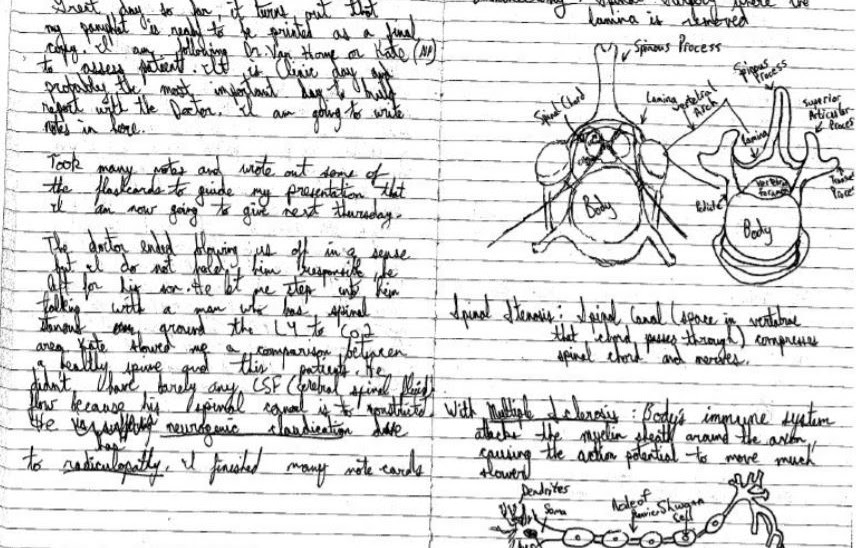 Great day so far it turns out that
my pamphlet is ready to be printed as a final
copy. I am following Dr. Van Horne or Kate (NP)
to assess patient. It is clinic day and
probably the most important day to build
report with the Doctor. I am going to write
notes in here.
Took many notes and wrote out some of
the flashcards to guide my presentation that
I am now going to give next thursday.
The doctor ended blowing us off in a sense
but I do not hate him responsible, he
left for his son. He let me step into him
talking with a man who has spinal
stenosis ground the L4 to
area. Kate showed me a comparison between
a healthy spine and this patients. He
didn't have barely any CSF (Cerebral spinal fluid)
flow because his spinal is to constricted
He neurogenic claudication
to radiculopathy. I finished many note cards
: Spinal where the
lamina is removed
Spinous Process
Spinal Chord
Lamina
Vertebral
Arch
Body
Spinous
Process
Superior
Articular
Process
Lamina
Vertebral
foramen
Transverse
Process
Pedicle
Body
Spinal Stenosis: Spinal Canal (space in vertebrae
that chord passes through) compresses
spinal chord and nerves.
With Multiple Sclerosis: Body's immune system
attacks the myelin sheath around the axon,
causing the action potential to move much
slower
Dendrites
Soma
Node of
Ranvier
Shwann
Cell